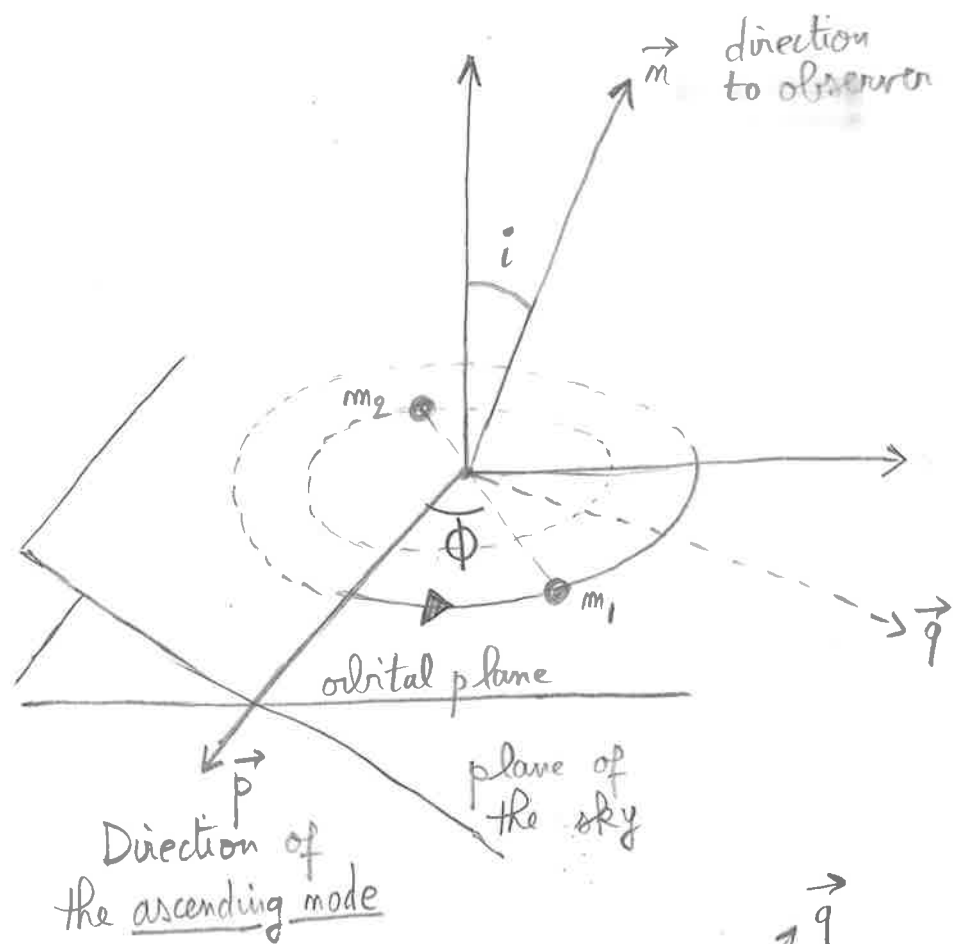 direction
n⃗ to observer
i
m₂
ϕ
m₁
q⃗
orbital plane
p⃗
plane of
the sky
Direction of
the ascending node
q⃗